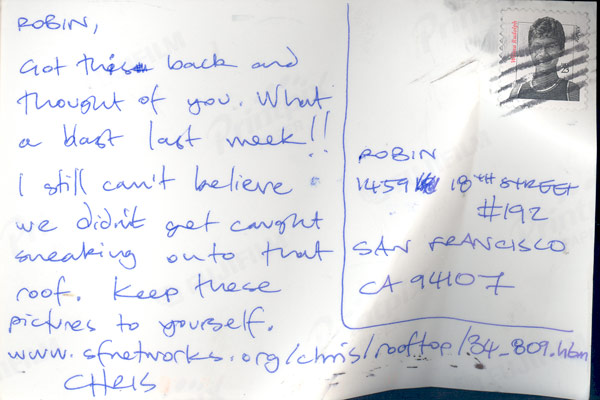 ROBIN,
Got this back and
thought of you. What
a blast last week!!
I still can't believe
we didn't get caught
sneaking onto that
roof. Keep these
pictures to yourself.
www.sfnetworks.org/chris/rooftop/34_809.htm
CHRIS
ROBIN
1459 18TH STREET
#192
SAN FRANCISCO
CA 94107
Wilma Rudolph
23